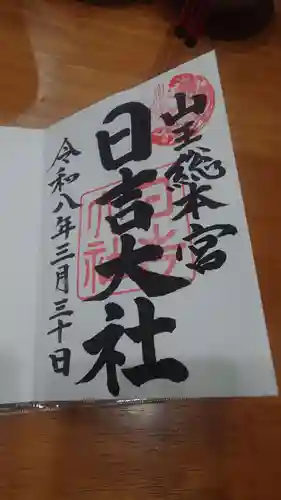 山王総本宮
日吉大社
令和八年三月三十日
日吉大社